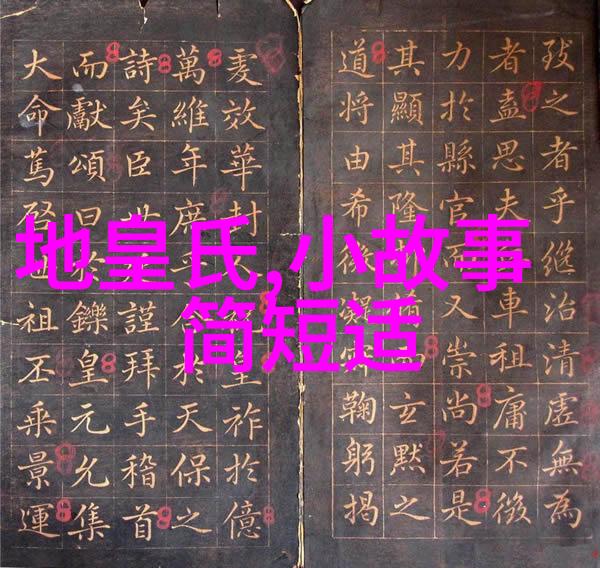 地皇氏,小故事
简短适
之者乎继治清虚無為
者盍思夫車租庸不徵
力於縣官又崇尚若是
其顯其隆玄默之
道将由希鞠躬揭
效華封皇祚於億
萬維年庶於天保之
詩矣臣世謹拜手稽首
而獻頌曰於鑠皇元允集
大命篤祖丕乘景運